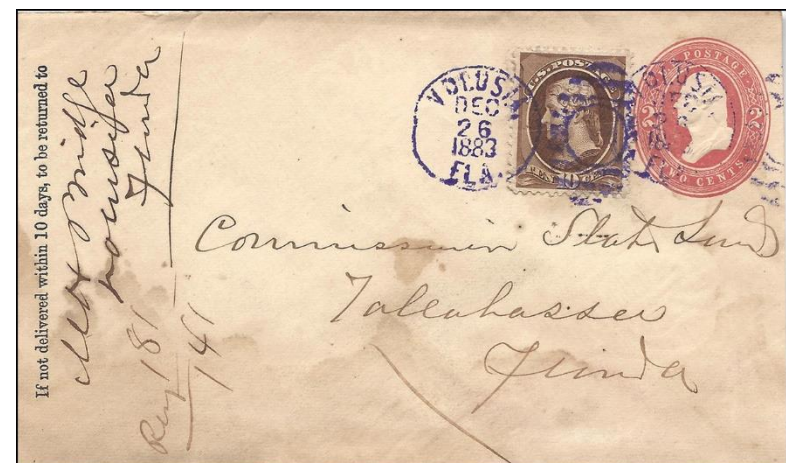 If not delivered within 10 days, to be returned to
Bridge
Volusia
Florida
Reg 181
141
VOLUSIA
DEC
26
1883
FLA.
U.S. POSTAGE
TEN CENTS
U.S. POSTAGE
TWO CENTS
Commissioner State Land
Tallahassee
Florida